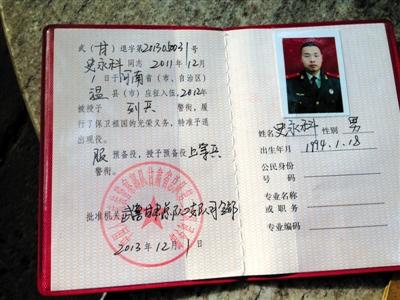 武（甘）退字第20130603 1号
史永科 同志 2011年12月
1日于河南省（市、自治区）
温 县（市）应征入伍，2012年
被授予 列兵 警衔，履
行了保卫祖国的光荣义务，特准予退
出现役。
服 预备役，授予预备役上等兵
警衔。
批准机关
2013年12月1日
姓名 史永科 性别 男
出生年月 1994.1.18
公民身份
号码
专业名称
或职务
专业编码